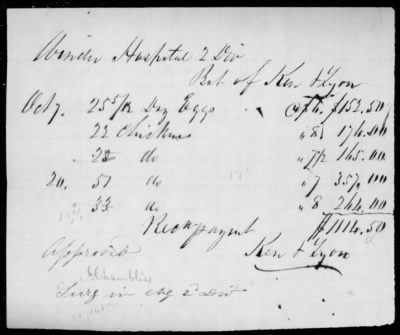 Winder Hospital 2 Div
Bot of Ken & Lyon
Oct 7. 25 5/12 Doz Eggs @ $6. $152.50
22 Chickens " 8 176.00
22 do " 7½ 165.00
20. 51 do " 7 357.00
33 do " 8 264.00
$1114.50
Recd payment
Approved Ken & Lyon
Surg in chg 2 Div